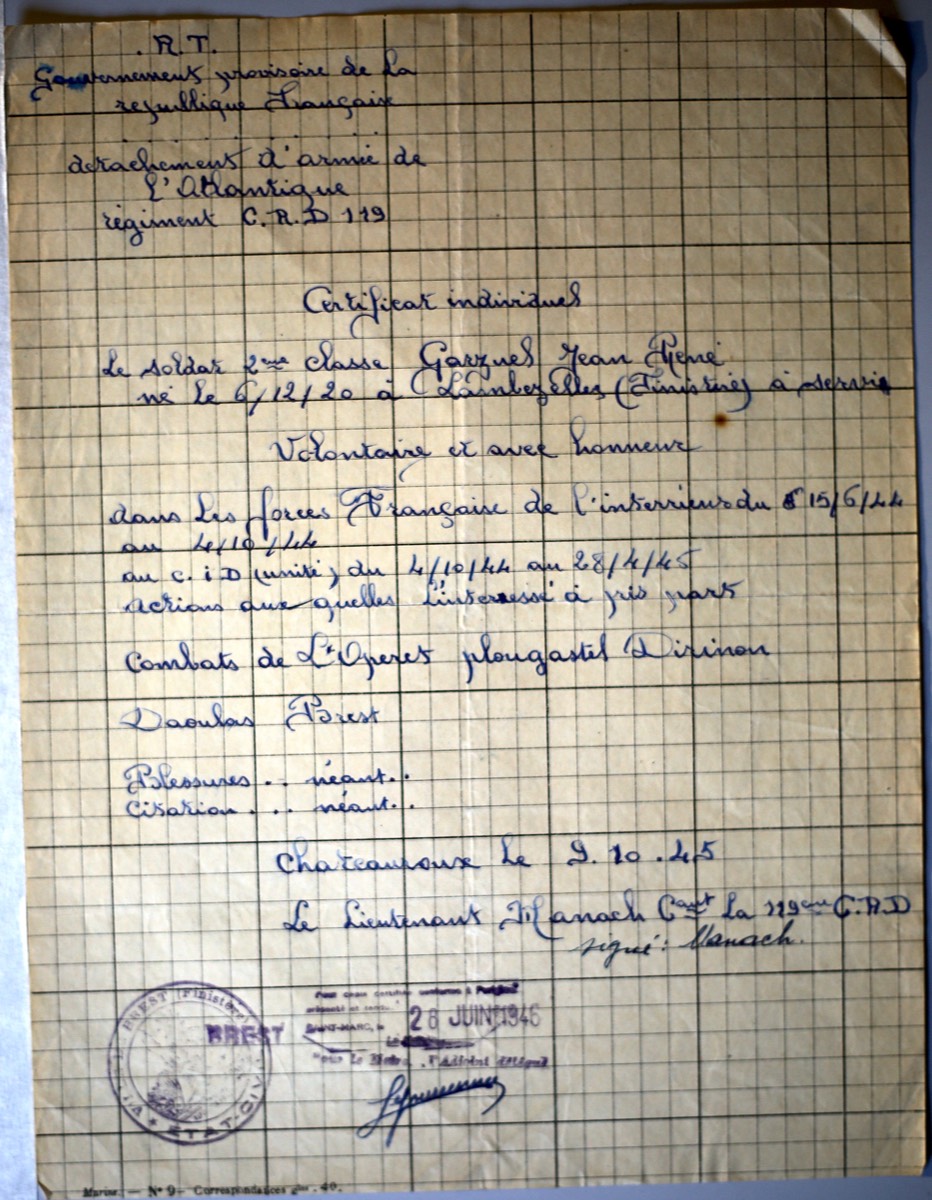 . R.T.
Gouvernement provisoire de la
republique Française
detachement d'armée de
L'Atlantique
régiment C.R.D 119
Certificat individuel
Le soldat 2ème classe Garznel Jean René
né le 6/12/20 à Lambezelles (Finistère) à servi
Volontaire et avec honneur
dans les forces Française de l'interrieur du 15/6/44
au 4/10/44
au C.i D (unité) du 4/10/44 au 28/4/45
Actions aux quelles l'interressé à pris part
Combats de L'Operet plougastel Dirinon
Daoulas Brest
Blessures .. néant..
Citation ... néant..
Chateauroux le 9.10.45
Le Lieutenant Manach Cant la 119ème C.R.D
signé: Manach.
BREST (Finistère)
BREST
ETAT-CIVIL
Pour copie certifiée conforme à l'original
SAINT-MARC, le 26 JUIN 1946
Pour le Maire, l'Adjoint délégué
Marine. — N° 9 — Correspondances gles. 40.